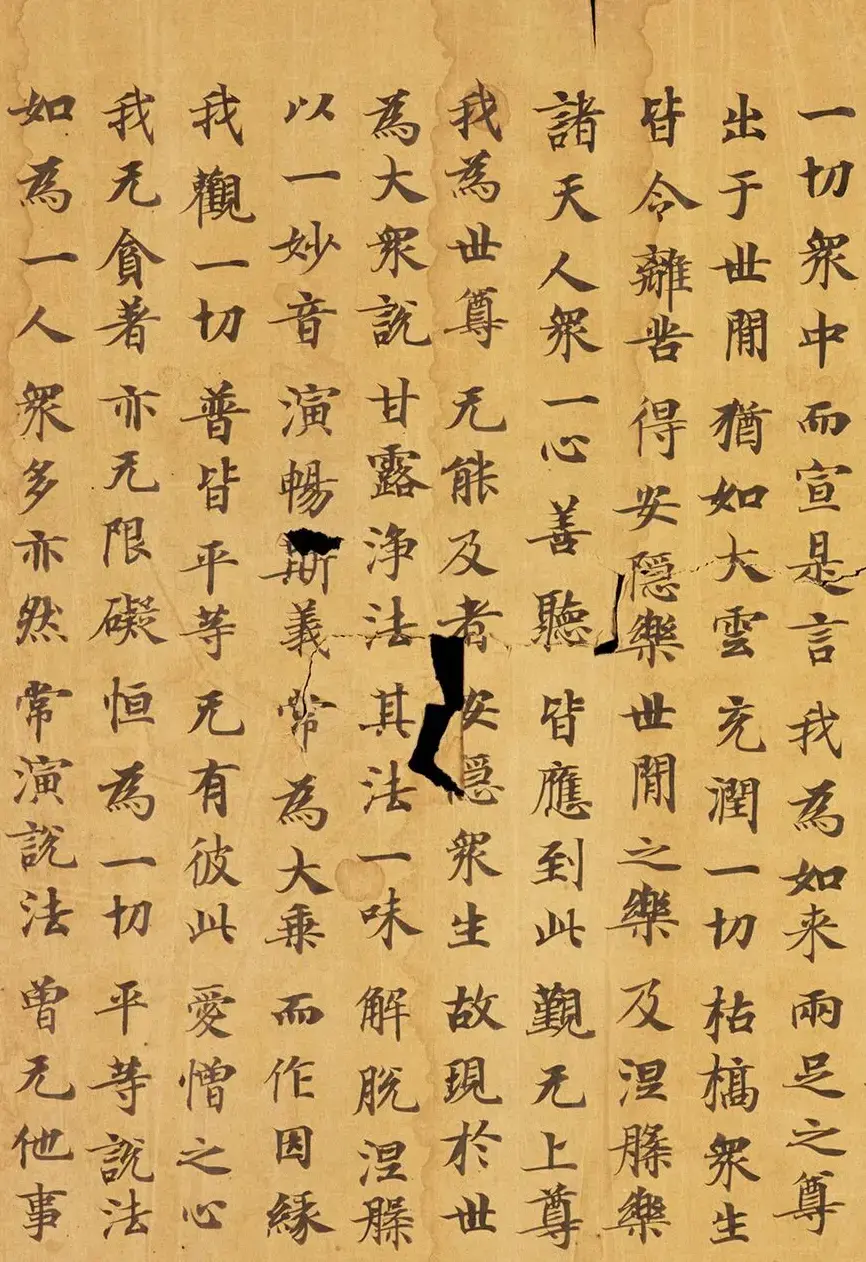 一切衆中 而宣是言 我為如来 兩足之尊
出于世閒 猶如大雲 充潤一切 枯槁衆生
皆令離苦 得安隠樂 世閒之樂 及涅槃樂
諸天人衆 一心善聽 皆應到此 覲无上尊
我為世尊 无能及者 安隠衆生 故現於世
為大衆說 甘露浄法 其法一味 解脫涅槃
以一妙音 演暢斯義 常為大乗 而作因縁
我觀一切 普皆平等 无有彼此 愛憎之心
我无貪著 亦无限礙 恒為一切 平等說法
如為一人 衆多亦然 常演說法 曽无他事